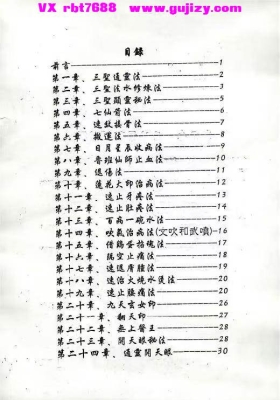 VX rbt7688 www.gujizy.com
目錄
前言 1
第一章、三聖通靈法 2
第二章、三聖法水修煉法 3
第三章、三聖顯靈秘法 3
第四章、七仙箭法 4
第五章、速效接骨法 7
第六章、搬運法 8
第七章、日月星辰收病法 9
第八章、魯班仙師止血法 10
第九章、退傷法 11
第十章、蓮花大印治病法 11
第十一章、速止牙疼法 12
第十二章、速止肚疼法 14
第十三章、百病一碗水法 15
第十四章、吹氣治病法(文吹和武噴) 16
第十五章、借鷄蛋抬魂法 17
第十六章、隔空止痛法 17
第十七章、速退膚腫法 19
第十八章、速治火燒水燙法 20
第十九章、速止腰痛法 20
第二十章、九天玄女印 26
第二十一章、翻天印 27
第二十二章、無上醫王 28
第二十三章、開天眼秘法 28
第二十四章、通靈開天眼 30